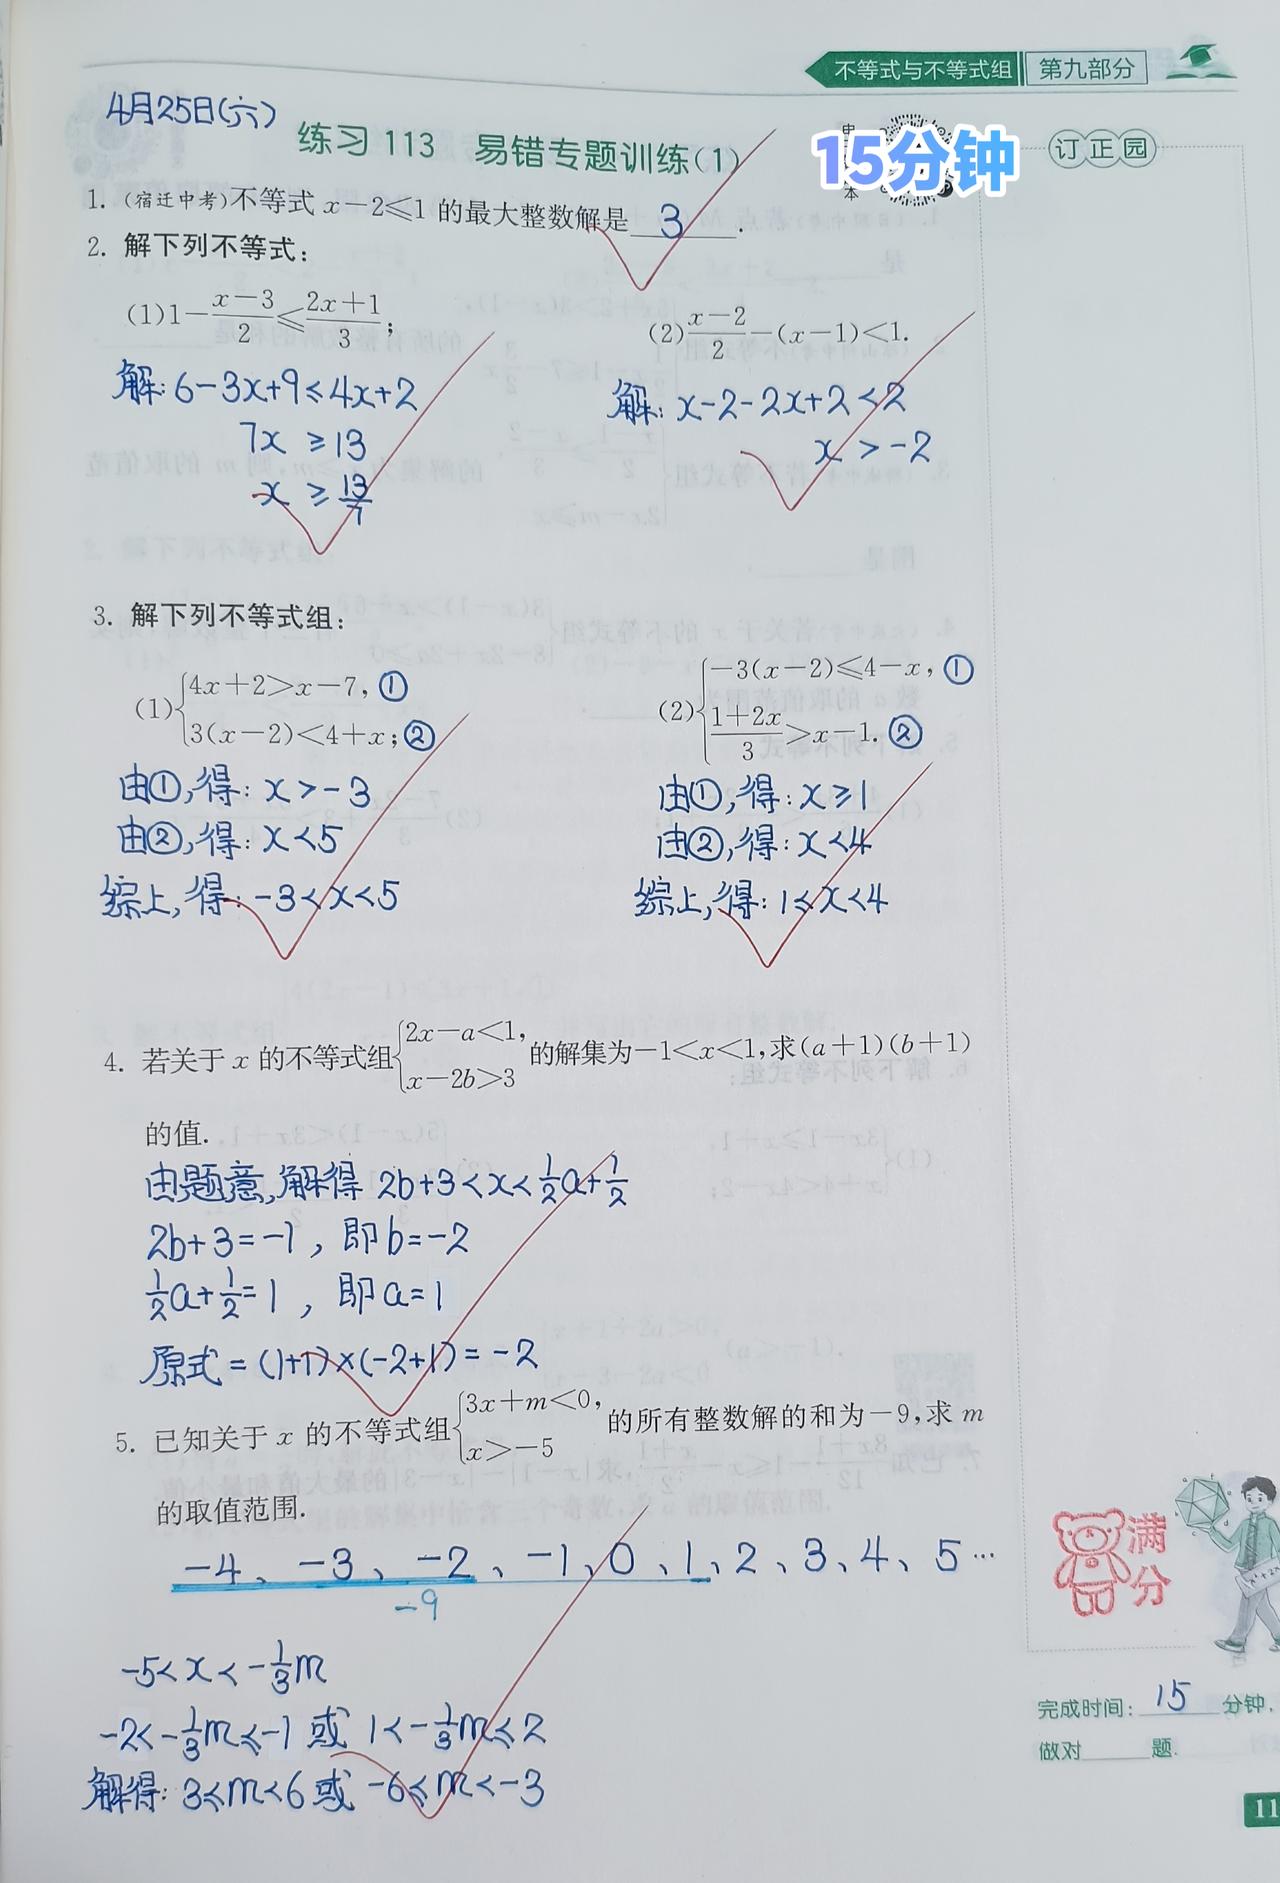 不等式与不等式组 第九部分
4月25日(六)
练习 113 易错专题训练(1)
15分钟
订正园
1. (宿迁中考)不等式 x-2≤1 的最大整数解是 3 .
2. 解下列不等式:
(1)1-\frac{x-3}{2}≤\frac{2x+1}{3};
(2)\frac{x-2}{2}-(x-1)<1.
解: 6-3x+9≤4x+2
7x ≥13
x ≥ \frac{13}{7}
解: x-2-2x+2<2
x >-2
3. 解下列不等式组:
(1){4x+2>x-7, ①
3(x-2)<4+x; ②
由①,得: x>-3
由②,得: x<5
综上,得: -3<x<5
(2){-3(x-2)≤4-x, ①
\frac{1+2x}{3}>x-1. ②
由①,得: x≥1
由②,得: x<4
综上,得: 1≤x<4
4. 若关于 x 的不等式组{2x-a<1, x-2b>3 的解集为-1<x<1,求(a+1)(b+1)
的值.
由题意,解得 2b+3<x<\frac{1}{2}a+\frac{1}{2}
2b+3=-1 , 即b=-2
\frac{1}{2}a+\frac{1}{2}=1 , 即a=1
原式=(1+1)×(-2+1)=-2
5. 已知关于 x 的不等式组{3x+m<0, x>-5 的所有整数解的和为-9,求 m
的取值范围.
-4、-3、-2、-1、0、1、2、3、4、5…
-9
-5<x<-\frac{1}{3}m
-2<-\frac{1}{3}m≤-1 或 1<-\frac{1}{3}m≤2
解得: 3≤m<6 或 -6≤m<-3
满分
完成时间: 15 分钟,
做对 题.
11